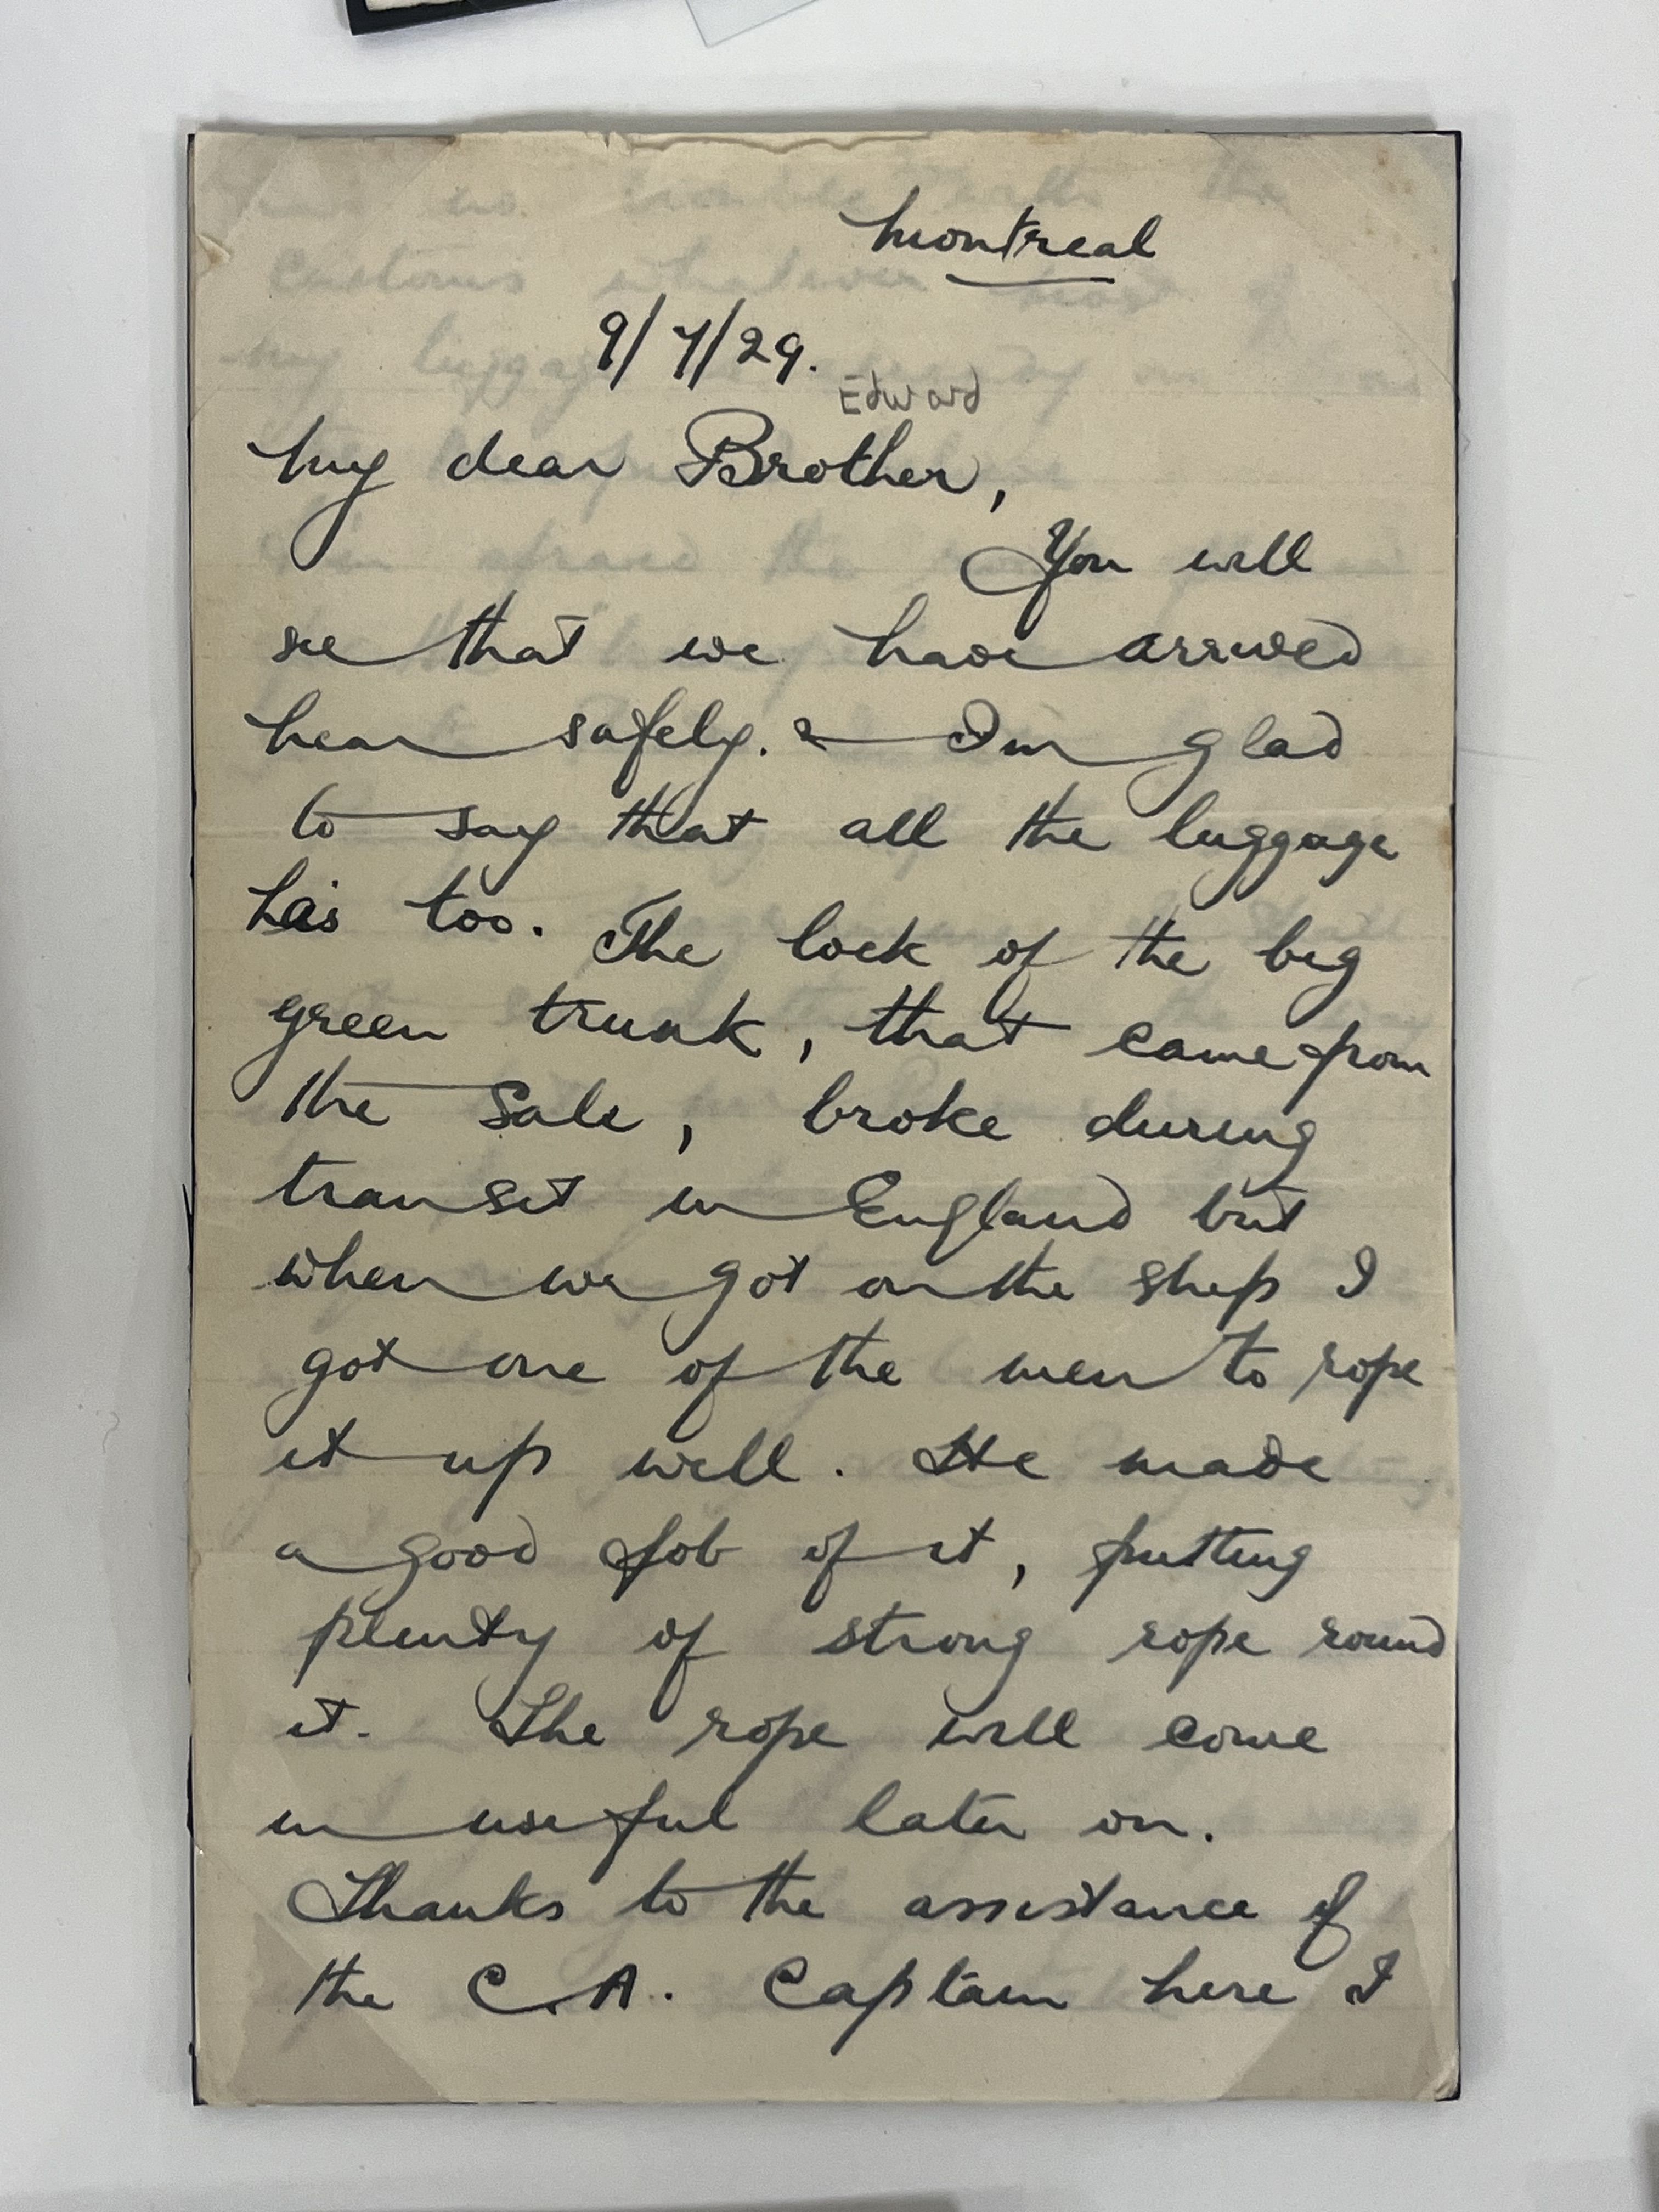 Montreal
9/7/29.
Edward
My dear Brother,
You will
see that we have arrived
hear safely. & I'm glad
to say that all the luggage
has too. The lock of the big
green trunk, that came from
the Sale, broke during
transit in England but
when we got on the ship I
got one of the men to rope
it up well. He made
a good job of it, putting
plenty of strong rope round
it. The rope will come
in useful later on.
Thanks to the assistance of
the C.A. Captain here I